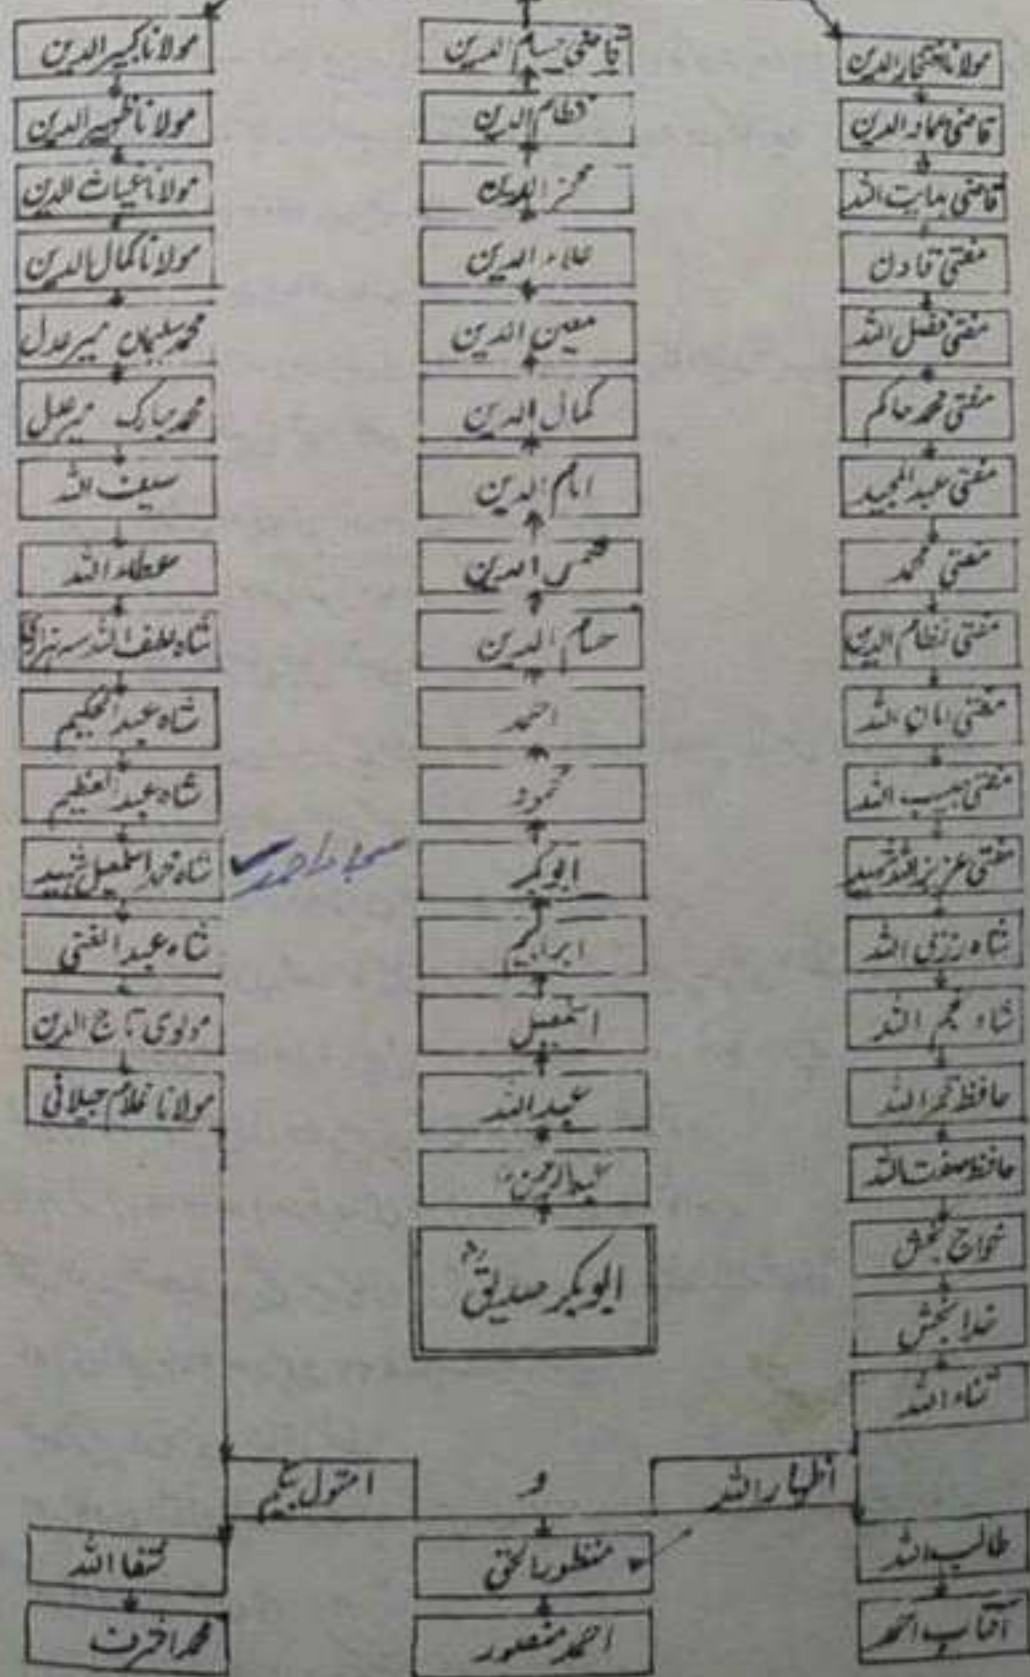 مولانا افتخار الدین
قاضی عماد الدین
قاضی ہدایت اللہ
مفتی قادن
مفتی فضل اللہ
مفتی محمد حاکم
مفتی عبدالمجید
مفتی محمد
مفتی نظام الدین
مفتی امان اللہ
مفتی حبیب اللہ
مفتی عزیز اللہ شہید
شاہ رزق اللہ
شاہ نجم اللہ
حافظ اللہ
حافظ صفت اللہ
خواج بخش
خدا بخش
ثناء اللہ
قاضی حسام الدین
نظام الدین
الدین
علاء الدین
معین الدین
کمال الدین
امام الدین
شمس الدین
حسام الدین
احمد
محمود
ابوبکر
ابراہیم
اسمٰعیل
عبداللہ
عبدالرحمن
ابوبکر صدیق رض
مولانا کبیر الدین
مولانا ظہیر الدین
مولانا غیاث الدین
مولانا کمال الدین
محمد سلیمان میر عدل
محمد مبارک میر عدل
سیف اللہ
عطاء اللہ
شاہ لطف اللہ
شاہ عبدالحکیم
شاہ عبدالعظیم
شاہ محمد اسمٰعیل شہید
سجاد احمد
شاہ عبدالغنی
مولوی تاج الدین
مولانا غلام جیلانی
اظہار اللہ
و
امتول بیگم
طالب اللہ
منظور الحق
شفا اللہ
آفتاب احمد
احمد منصور
محمد اشرف